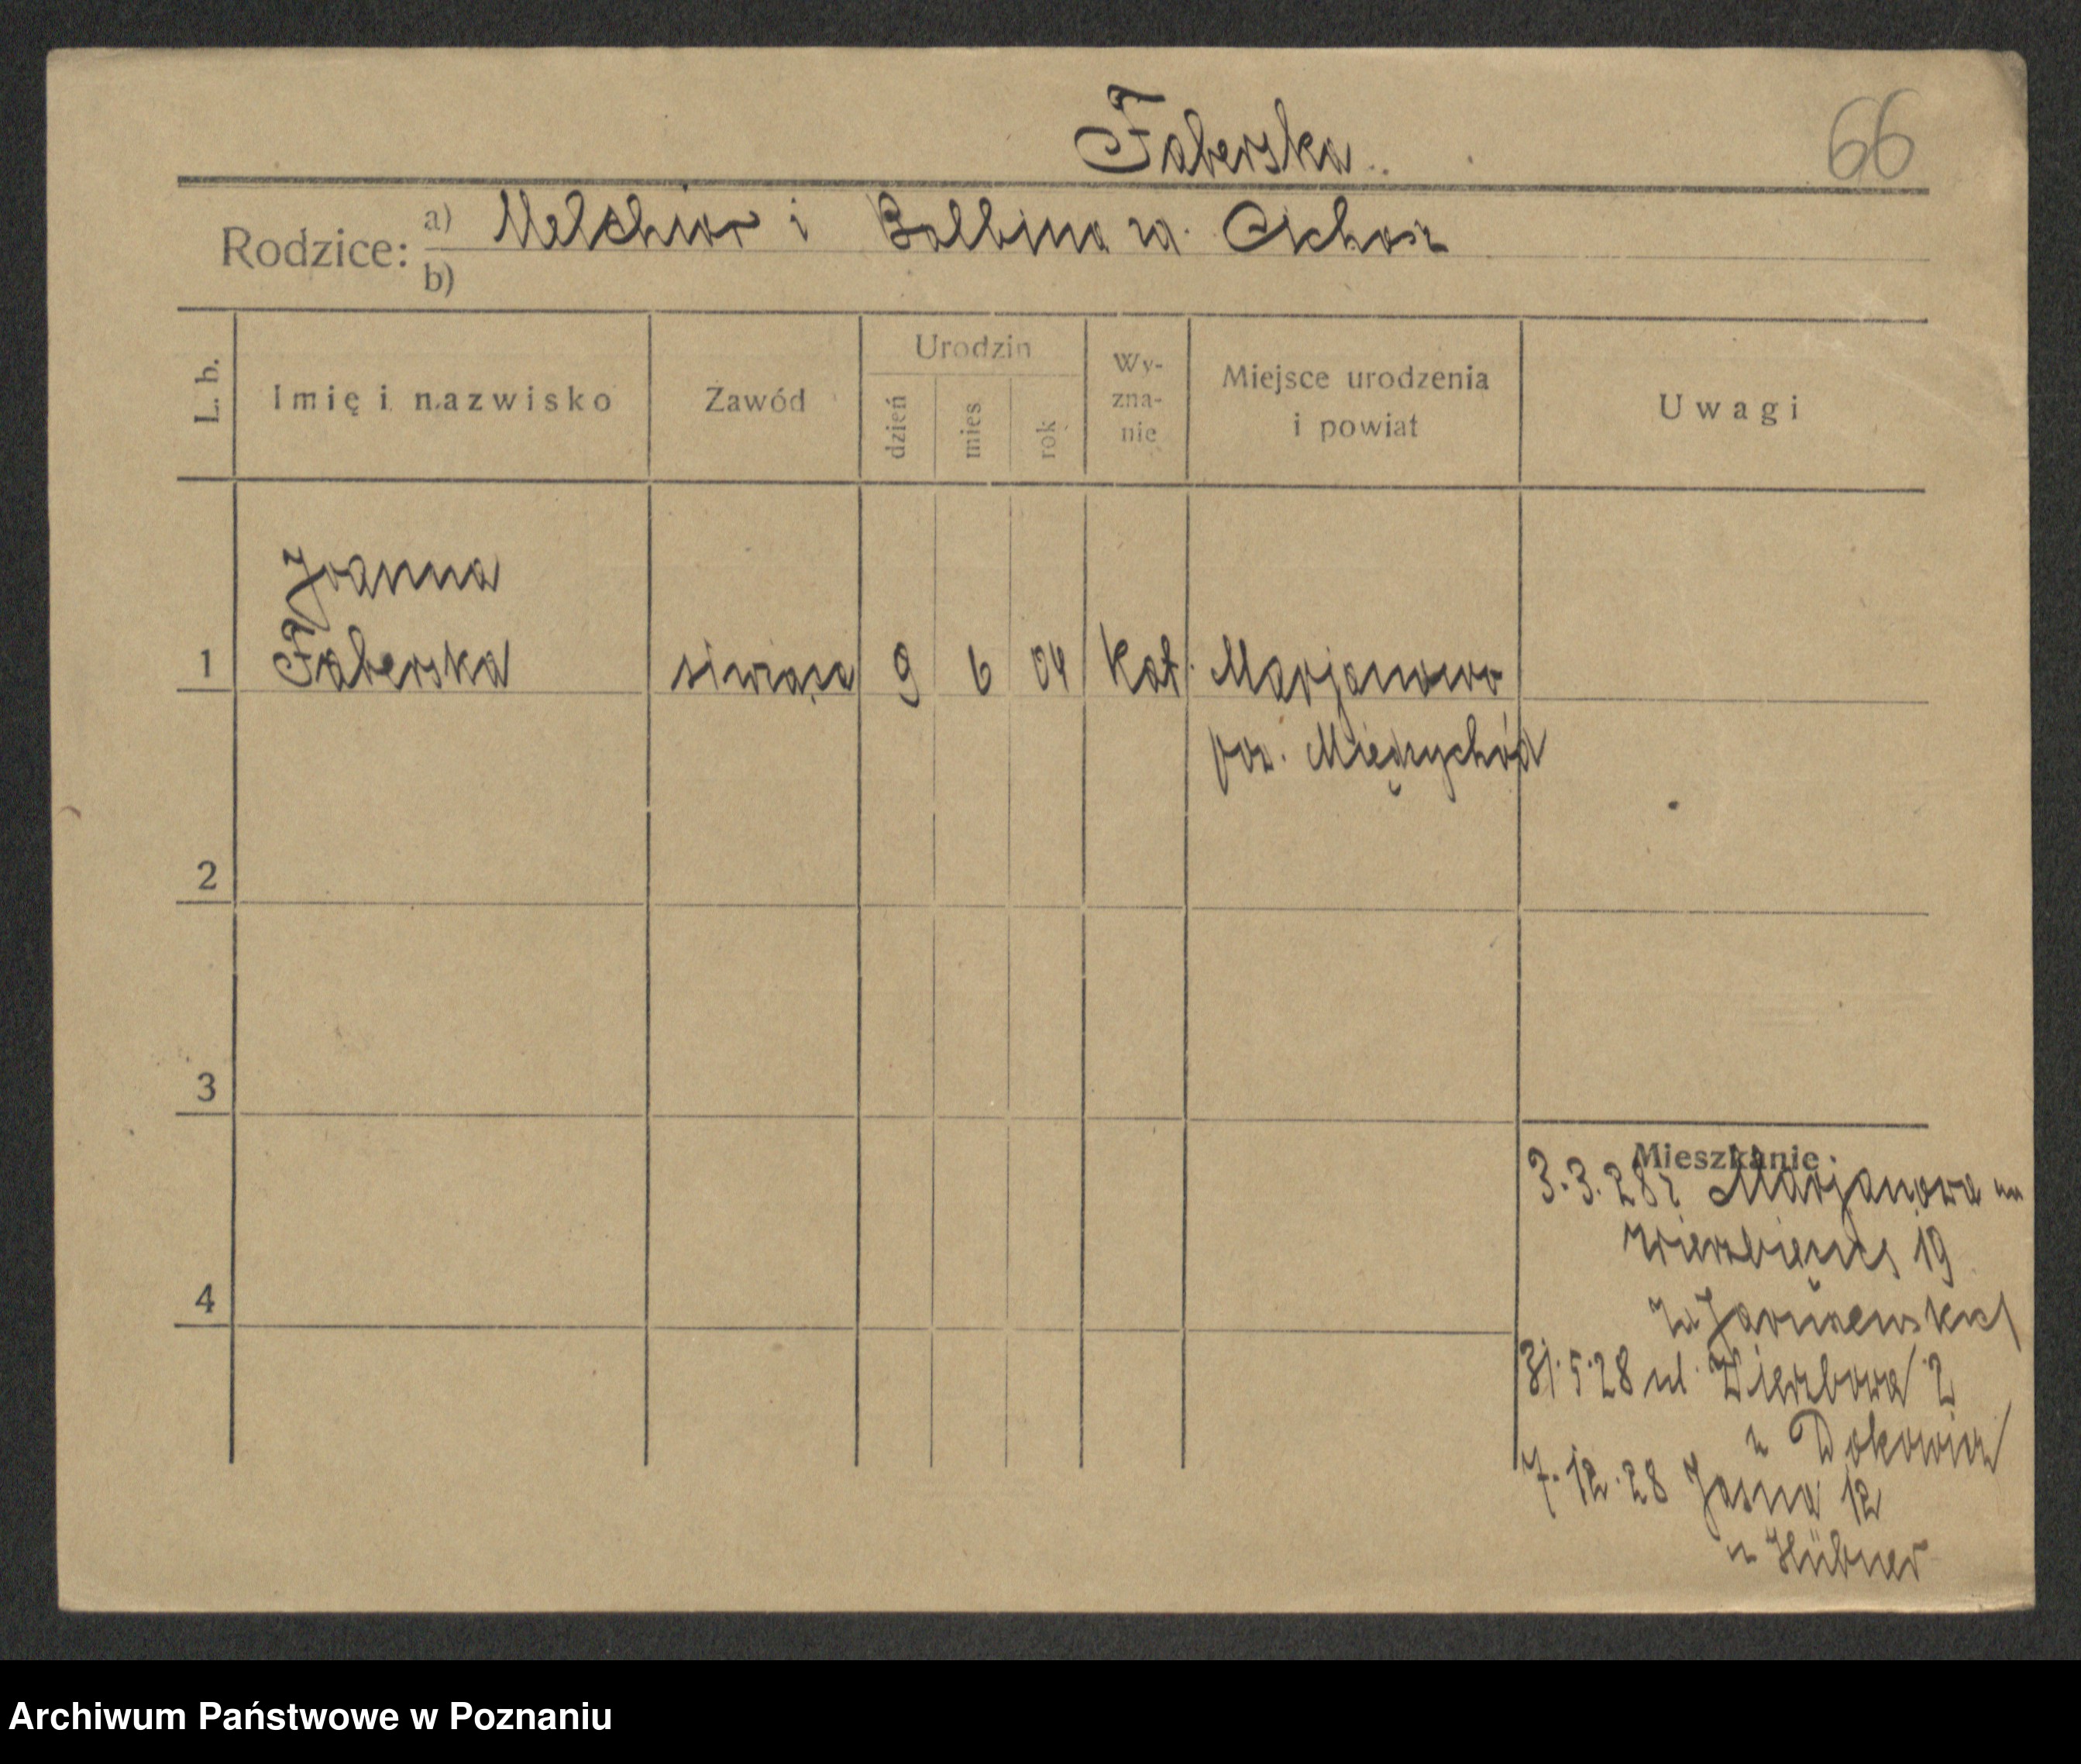 Faberska
66
Rodzice: a) Melchior i Balbina za. Cichosz
b)
L. b. Imię i nazwisko Zawód Urodzin dzień mies rok Wy-zna-nie Miejsce urodzenia i powiat Uwagi
Joanna
1 Faberska 9 6 04 kat. Marjanowo
pow. Międzychód
2
3
Mieszkanie
3.3.28 r Marjanowa
Wierzbięcice 19
4
31.5.28 ul. Wierzbowa 2
u
7.12.28 Jasna 12
u Hübner
Archiwum Państwowe w Poznaniu